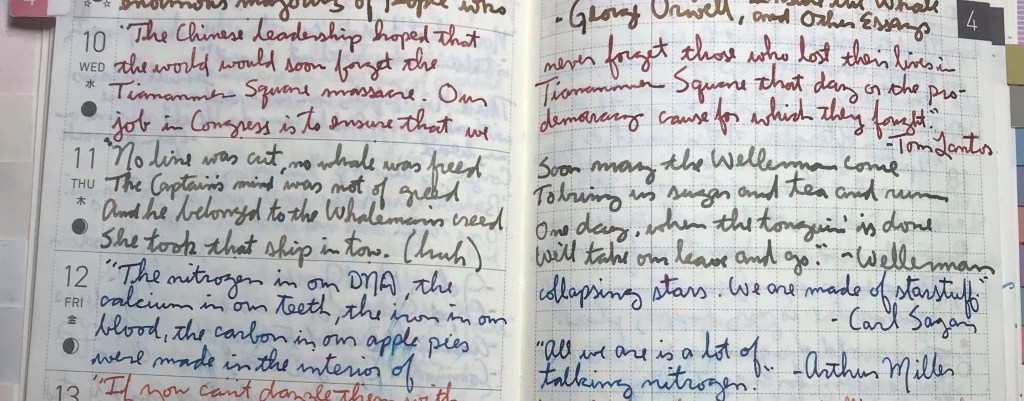 enormous majority of people who
10
WED
水
"The Chinese leadership hoped that
the world would soon forget the
Tiananmen Square massacre. Our
job in Congress is to ensure that we
11
THU
木
"No line was cut, no whale was freed
The Captain's mind was not of greed
And he belonged to the Whaleman's creed
She took that ship in tow. (huh)
12
FRI
金
"The nitrogen in our DNA, the
calcium in our teeth, the iron in our
blood, the carbon in our apple pies
were made in the interior of
13
"If you can't dazzle them with
4
the Whale
- George Orwell, and Other Essays
never forget those who lost their lives in
Tiananmen Square that day or the pro-
democracy cause for which they fought."
- Tom Lantos
Soon may the Wellerman come
To bring us sugar and tea and rum
One day, when the tonguin' is done
We'll take our leave and go." - Wellerman
collapsing stars. We are made of starstuff."
- Carl Sagan
"All we are is a lot of
talking nitrogen." - Arthur Miller